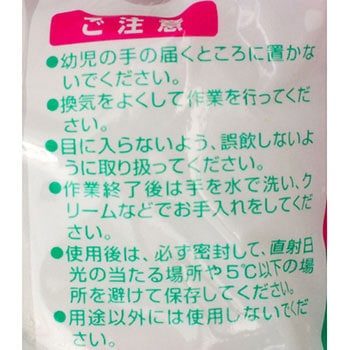 ご注意
●幼児の手の届くところに置かな
いでください。
●換気をよくして作業を行ってくだ
さい。
●目に入らないよう、誤飲しないよ
うに取り扱ってください。
●作業終了後は手を水で洗い、ク
リームなどでお手入れをしてくだ
さい。
●使用後は、必ず密封して、直射日
光の当たる場所や5℃以下の場
所を避けて保存してください。
●用途以外には使用しないでくだ
さい。